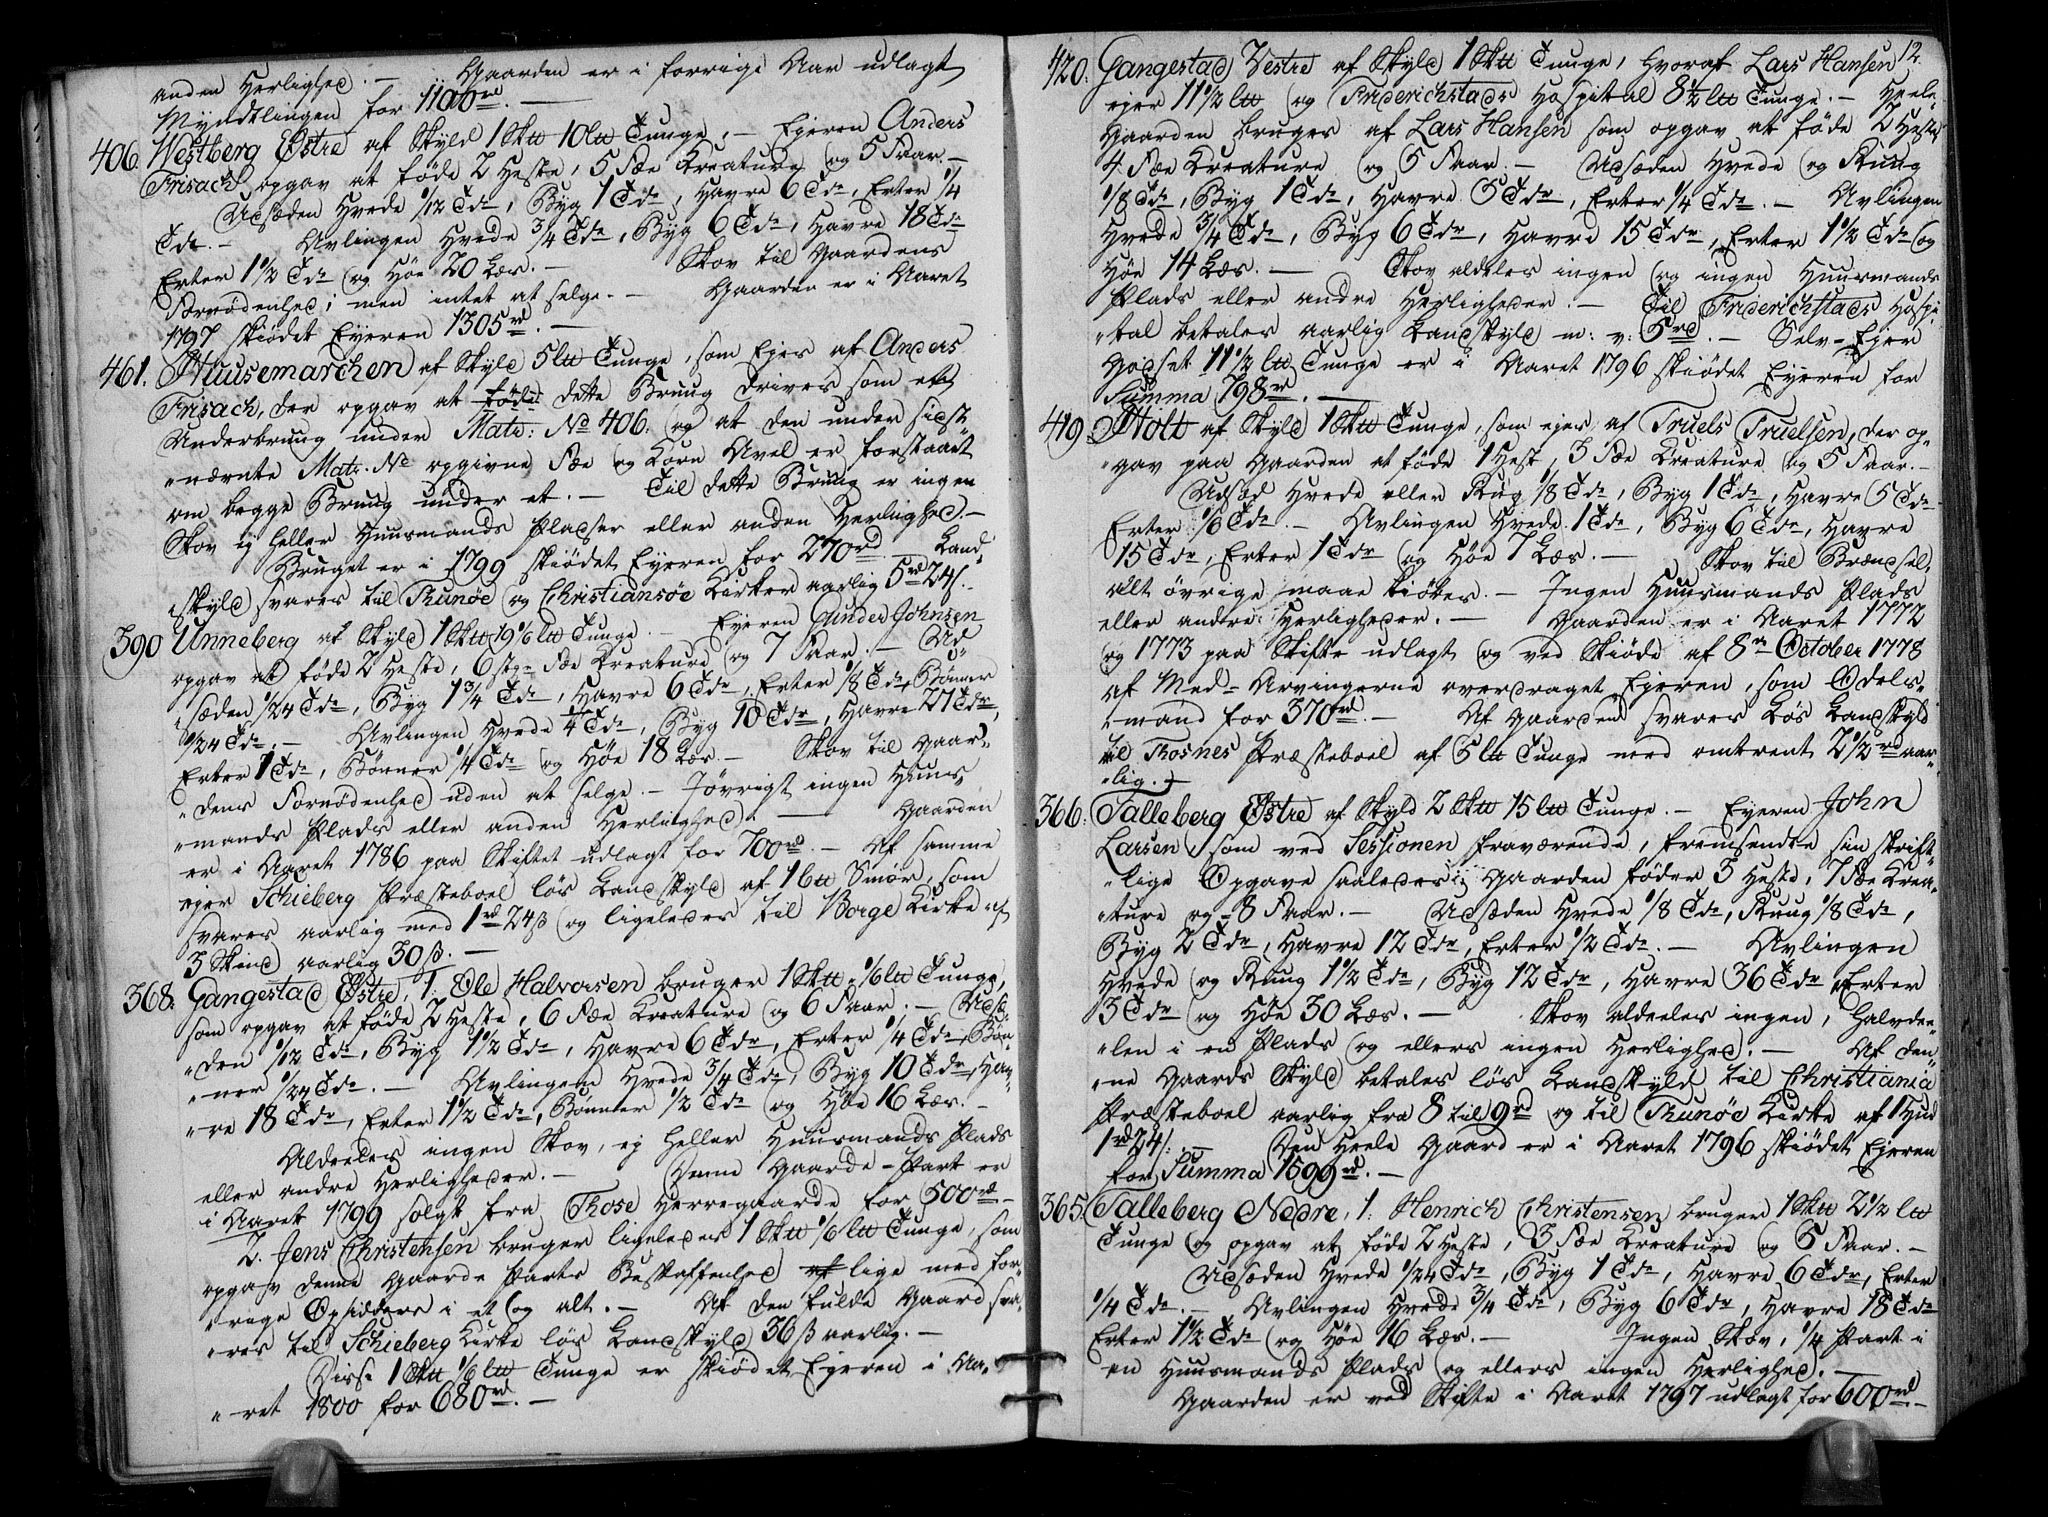 anden Herlighed. — Gaarden er i forrige Aar udlagt
Myndtlingen for 1100 rd. —
406. Westberg Østre af Skyld 1 Sktt 10 ltt Tunge, — Ejeren Anders
Frisach opgav at føde 2 Heste, 5 Fæ Kreature og 5 Faar. —
Udsæden Hvede 1/12 Tde, Byg 1 Tde, Havre 6 Tdr, Erter 1/4
Tde. — Avlingen Hvede 3/4 Tde, Byg 6 Tdr, Havre 18 Tdr
Erter 1 1/2 Tde og Høe 20 Læs. — Skov til Gaardens
Fornødenhed; men intet at selge. — Gaarden er i Aaret
1797 skiødet Eyeren 1305 rd. —
461. Huusemarchen af Skyld 5 ltt Tunge, som Ejes af Anders
Frisach, der opgav at føde dette Bruug drives som et
Underbruug under Matr: No 406. og at den under sidst
nævnte Matr. No opgivne Fæe og Korn Avel er forstaaet
om begge Bruug under et. — Til dette Bruug er ingen
Skov ej heller Huusmands Pladser eller anden Herlighed. —
Bruget er i 1799 skiødet Eyeren for 270 rd. Land-
skyld svares til Thunøe og Christiansøe Kirker aarlig 5 rd 24 s. —
390 Unneberg af Skyld 1 Sktt 19 1/6 ltt Tunge. — Eyeren Gunder Johnsen
opgav at føde 2 Heste, 6 stk: Fæe Kreature og 7 Faar. — Ud-
sæden 1/24 Tde, Byg 1 3/4 Tde, Havre 6 Tdr, Erter 1/8 Tde, Bønner
1/24 Tde. — Avlingen Hvede 1/4 Tde, Byg 10 Tdr, Havre 27 Tdr,
Erter 1 Tde, Bønner 1/4 Tde og Høe 18 Læs. — Skov til Gaar-
dens Fornødenhed uden at selge. — Jøvrigt ingen Huus-
mands Plads eller anden Herlighed. — Gaarden
er i Aaret 1786 paa Skiftet udlagt for 700 rd. — Af samme
ejer Schieberg Præsteboel løs Landskyld af 1 btt Smør, som
svares aarlig med 1 rd 24 ß og ligeledes til Borge Kirke af
3 Skind aarlig 30 ß. —
368. Gangestad Østre, 1. Ole Halvorsen bruger 1 Sktt 1/6 ltt Tunge,
som opgav at føde 2 Heste, 6 Fæe Kreature og 6 Faar. — Udsæ-
den 1/12 Tde, Byg 1 1/2 Tde, Havre 6 Tdr, Erter 1/4 Tde, Bøn-
ner 1/24 Tde. — Avlingen Hvede 3/4 Tde, Byg 10 Tdr, Hav-
re 18 Tdr, Erter 1 1/2 Tde, Bønner 1/2 Tde og Høe 16 Læs. —
Aldeeles ingen Skov, ej heller Huusmands Plads
eller andre Herligheder. — Denne Gaarde-Part er
i Aaret 1799 solgt fra Those Herregaarde for 500 rd —
2. Jens Christensen bruger ligeledes 1 Sktt 1/6 ltt Tunge, som
opgav denne Gaarde Parts Beskaffenhed af lige med for-
rige Opsidders i et og alt. — Af den fulde Gaard sva-
res til Schieberg Kirke løs Landskyld 36 ß aarlig. —
Disse 1 Sktt 1/6 ltt Tunge er skiødet Ejeren i Aa-
ret 1800 for 680 rd. —
12.
420. Gangestad Vestre af Skyld 1 Sktt Tunge, hvoraf Lars Hansen
ejer 11 1/2 ltt og Friderichstads Hospital 8 1/2 ltt Tunge. — Heele
Gaarden bruges af Lars Hansen som opgav at føde 2 Heste
4 Fæe Kreature og 5 Faar. — Udsæden Hvede og Ruug
1/8 Tde, Byg 1 Tde, Havre 5 Tdr, Erter 1/4 Tde. — Avlingen
Hvede 3/4 Tde, Byg 6 Tdr, Havre 15 Tdr, Erter 1 1/2 Tde og
Høe 14 Læs. — Skov aldeles ingen og ingen Huusmands
Plads eller andre Herligheder. — Til Friderichstads Hospi-
tal betales aarlig Landskyld m: v: 5 rd. — Selv-Ejer
Godset 11 1/2 ltt Tunge er i Aaret 1796 skiødet Eyeren for
Summa 798 rd. —
419. Holt af Skyld 1 Sktt Tunge, som ejes af Truels Truelsen, der op-
gav paa Gaarden at føde 1 Hest, 3 Fæe Kreature og 5 Faar. —
Udsæd Hvede eller Rug 1/8 Tde, Byg 1 Tde, Havre 5 Tdr
Erter 1/8 Tde — Avlingen Hvede 1 Tde, Byg 6 Tdr, Havre
15 Tdr, Erter 1 Tde og Høe 7 Læs. — Skov til Brændsel,
alt øvrige maae kiøbes. — Ingen Huusmands Plads
eller andre Herligheder. — Gaarden er i Aaret 1772
og 1773 paa Skifte udlagt og ved Skiøde af 8de October 1778
af Med-Arvingerne overdraget Ejeren, som Odels-
mand for 370 rd. — Af Gaarden svares Løs Landskyld
til Thosnes Præsteboel af 5 ltt Tunge med omtrent 2 1/2 rd aar-
lig. —
366. Talleberg Østre af Skyld 2 Sktt 15 ltt Tunge. — Eyeren John
Larsen, som ved Sessionen fraværende, fremsendte sin skrift-
lige Opgave saaledes: Gaarden føder 3 Heste, 7 Fæe Krea-
ture og 8 Faar. — Udsæden Hvede 1/8 Tde, Ruug 1/8 Tde,
Byg 2 Tdr, Havre 12 Tdr, Erter 1/2 Tde. — Avlingen
Hvede og Ruug 1 1/2 Tde, Byg 12 Tdr, Havre 36 Tdr, Erter
3 Tdr og Høe 30 Læs. — Skov aldeeles ingen, Halvdee-
len i en Plads og ellers ingen Herlighed. — Af den-
ne Gaards Skyld betales løs Landskyld til Christiania
Præsteboel aarlig fra 8 til 9 rd og til Thunøe Kirke af 1 Hud
1 rd 24 s. — Den Heele Gaard er i Aaret 1796 skiødet Ejeren
for Summa 1599 rd. —
365. Talleberg Nedre, 1. Henrich Christensen bruger 1 Sktt 2 1/2 ltt
Tunge og opgav at føde 2 Heste, 3 Fæe Kreature og 5 Faar. —
Udsæden Hvede 1/24 Tde, Byg 1 Tde, Havre 6 Tdr, Erter
1/4 Tde. — Avlingen Hvede 3/4 Tde, Byg 6 Tdr, Havre 18 Tdr
Erter 1 1/2 Tde og Høe 16 Læs. — Ingen Skov, 1/4 Part i
en Huusmands Plads og ellers ingen Herlighed. —
Gaarden er ved Skifte i Aaret 1797 udlagt for 600 rd —